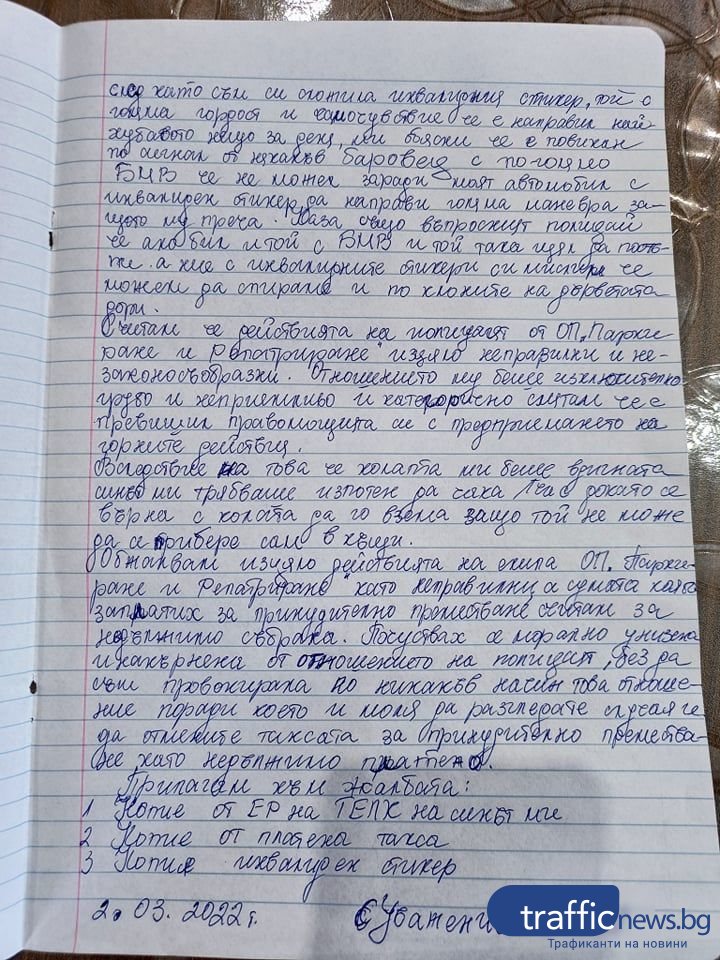 след като съм си сложила инвалидния стикер, той с
голяма гордост и самочувствие че е направил най-
хубавото нещо за деня, ми обясни че е повикан
по сигнал от някакъв баровец с по голямо
БМВ че не може заради моят автомобил с
инвалиден стикер да направи голяма маневра за-
щото му преча. Каза също въпросният полицай
че ако бил и той с БМВ и той така щял да
же. а ние с инвалидните стикери си мислели че
можем да спираме и по клоните на дърветата
дори.
Считам че действията на полицаят от ОП "Парки-
ране и Репатриране" изцяло неправилни и не-
законосъобразни. Отношението му беше изключително
грубо и неприемливо и категорично считам че е
превишил правомощията си с предприемането на
горните действия.
Вследствие на това че колата ми беше вдигната
синът ми трябваше изпотен да чака 1 час докато се
върна с колата да го взема защо той не може
да се прибере сам в къщи.
Обжалвам изцяло действията на екипа ОП. "Парки-
ране и Репатриране" като неправилни а сумата която
заплатих за принудително преместване считам за
недължимо събрана. Почуствах се морално унизена
и накърнена от отношението на полицаят, без да
съм провокирала по никакъв начин това отноше-
ние поради което и моля да разгледате случая и
да отмените таксата за принудително премества-
не като недължимо платено.
Прилагам към жалбата:
1 Копие от ЕР на ТЕЛК на синът ми
2 Копие от платена такса
3 Копие инвалиден стикер
2. 03. 2022 г. С Уважение
trafficnews.bg
Трафиканти на новини